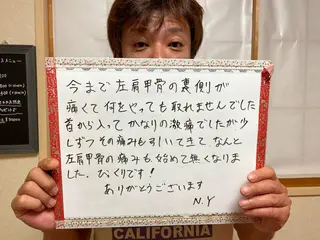 今まで左肩甲骨の裏側が
痛くて何をやっても取れませんでした
首から入ってかなりの激痛でしたが少
しずつその痛みもすいてきて なんと
左肩甲骨の痛みも始めて無くなりま
した。びくりです!
ありがとうございます
N.Y
CALIFORNIA